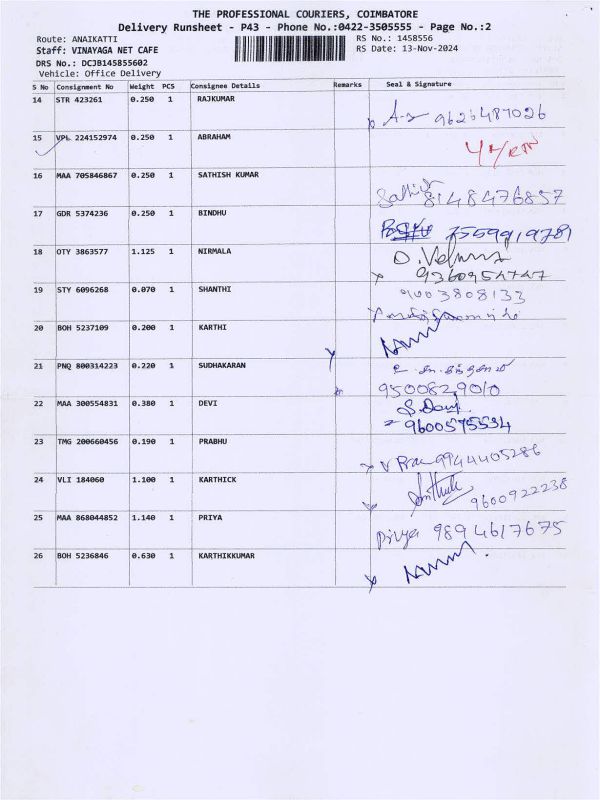 THE PROFESSIONAL COURIERS, COIMBATORE
Delivery Runsheet - P43 - Phone No.:0422-3505555 - Page No.:2
Route: ANAIKATTI
RS No.: 1458556
Staff: VINAYAGA NET CAFE
RS Date: 13-Nov-2024
DRS No.: DCJB145855602
Vehicle: Office Delivery
S No Consignment No Weight PCS Consignee Details Remarks Seal & Signature
14 STR 423261 0.250 1 RAJKUMAR
9626487026
15 VPL 224152974 0.250 1 ABRAHAM
16 MAA 705846867 0.250 1 SATHISH KUMAR
Sathish 8148476857
17 GDR 5374236 0.250 1 BINDHU
7559919781
18 OTY 3863577 1.125 1 NIRMALA
19 STY 6096268 0.070 1 SHANTHI
9003808133
20 BOH 5237109 0.200 1 KARTHI
21 PNQ 800314223 0.220 1 SUDHAKARAN
9500829010
22 MAA 300554831 0.380 1 DEVI
9600575534
23 TMG 200660456 0.190 1 PRABHU
9944405286
24 VLI 184060 1.100 1 KARTHICK
9600922238
25 MAA 868044852 1.140 1 PRIYA
Priya 9894617675
26 BOH 5236846 0.630 1 KARTHIKKUMAR